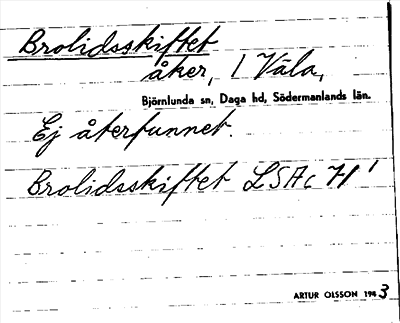 Brolidsskiftet
åker, 1 Väla,
Björnlunda sn, Daga hd, Södermanlands län.
Ej återfunnet.
Brolidsskiftet LSAc
ARTUR OLSSON 1943